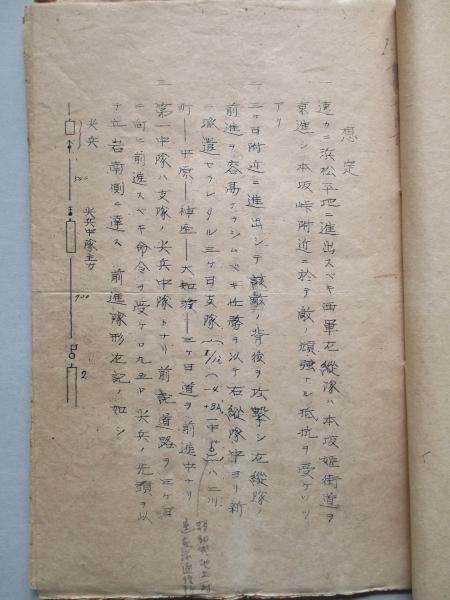 想定
一 速カニ浜松平地ニ進出スベキ西軍左縦隊ハ本坂姫街道ヲ
東進シ本坂峠附近ニ於テ敵ノ頑強ナル抵抗ヲ受ケツツ
アリ
二 三ヶ日附近ニ進出シテ該敵ノ背後ヲ攻撃シ左縦隊ノ
前進ヲ容易ナラシムベキ任務ヲ以テ右縦隊中ヨリ新
ニ派遣セラレタル三ヶ日支隊
ハ三川
町―平原―神座―大知波―三ヶ日道ヲ前進中ナリ
三 第一中隊ハ支隊ノ尖兵中隊トナリ前記道路ヲ三ヶ日
ニ向ヒ前進スベキ命令ヲ受ケ
尖兵ノ先頭ヲ以
テ立岩南側ニ達ス 前進隊形左記ノ如シ
尖兵
尖兵中隊主力
2